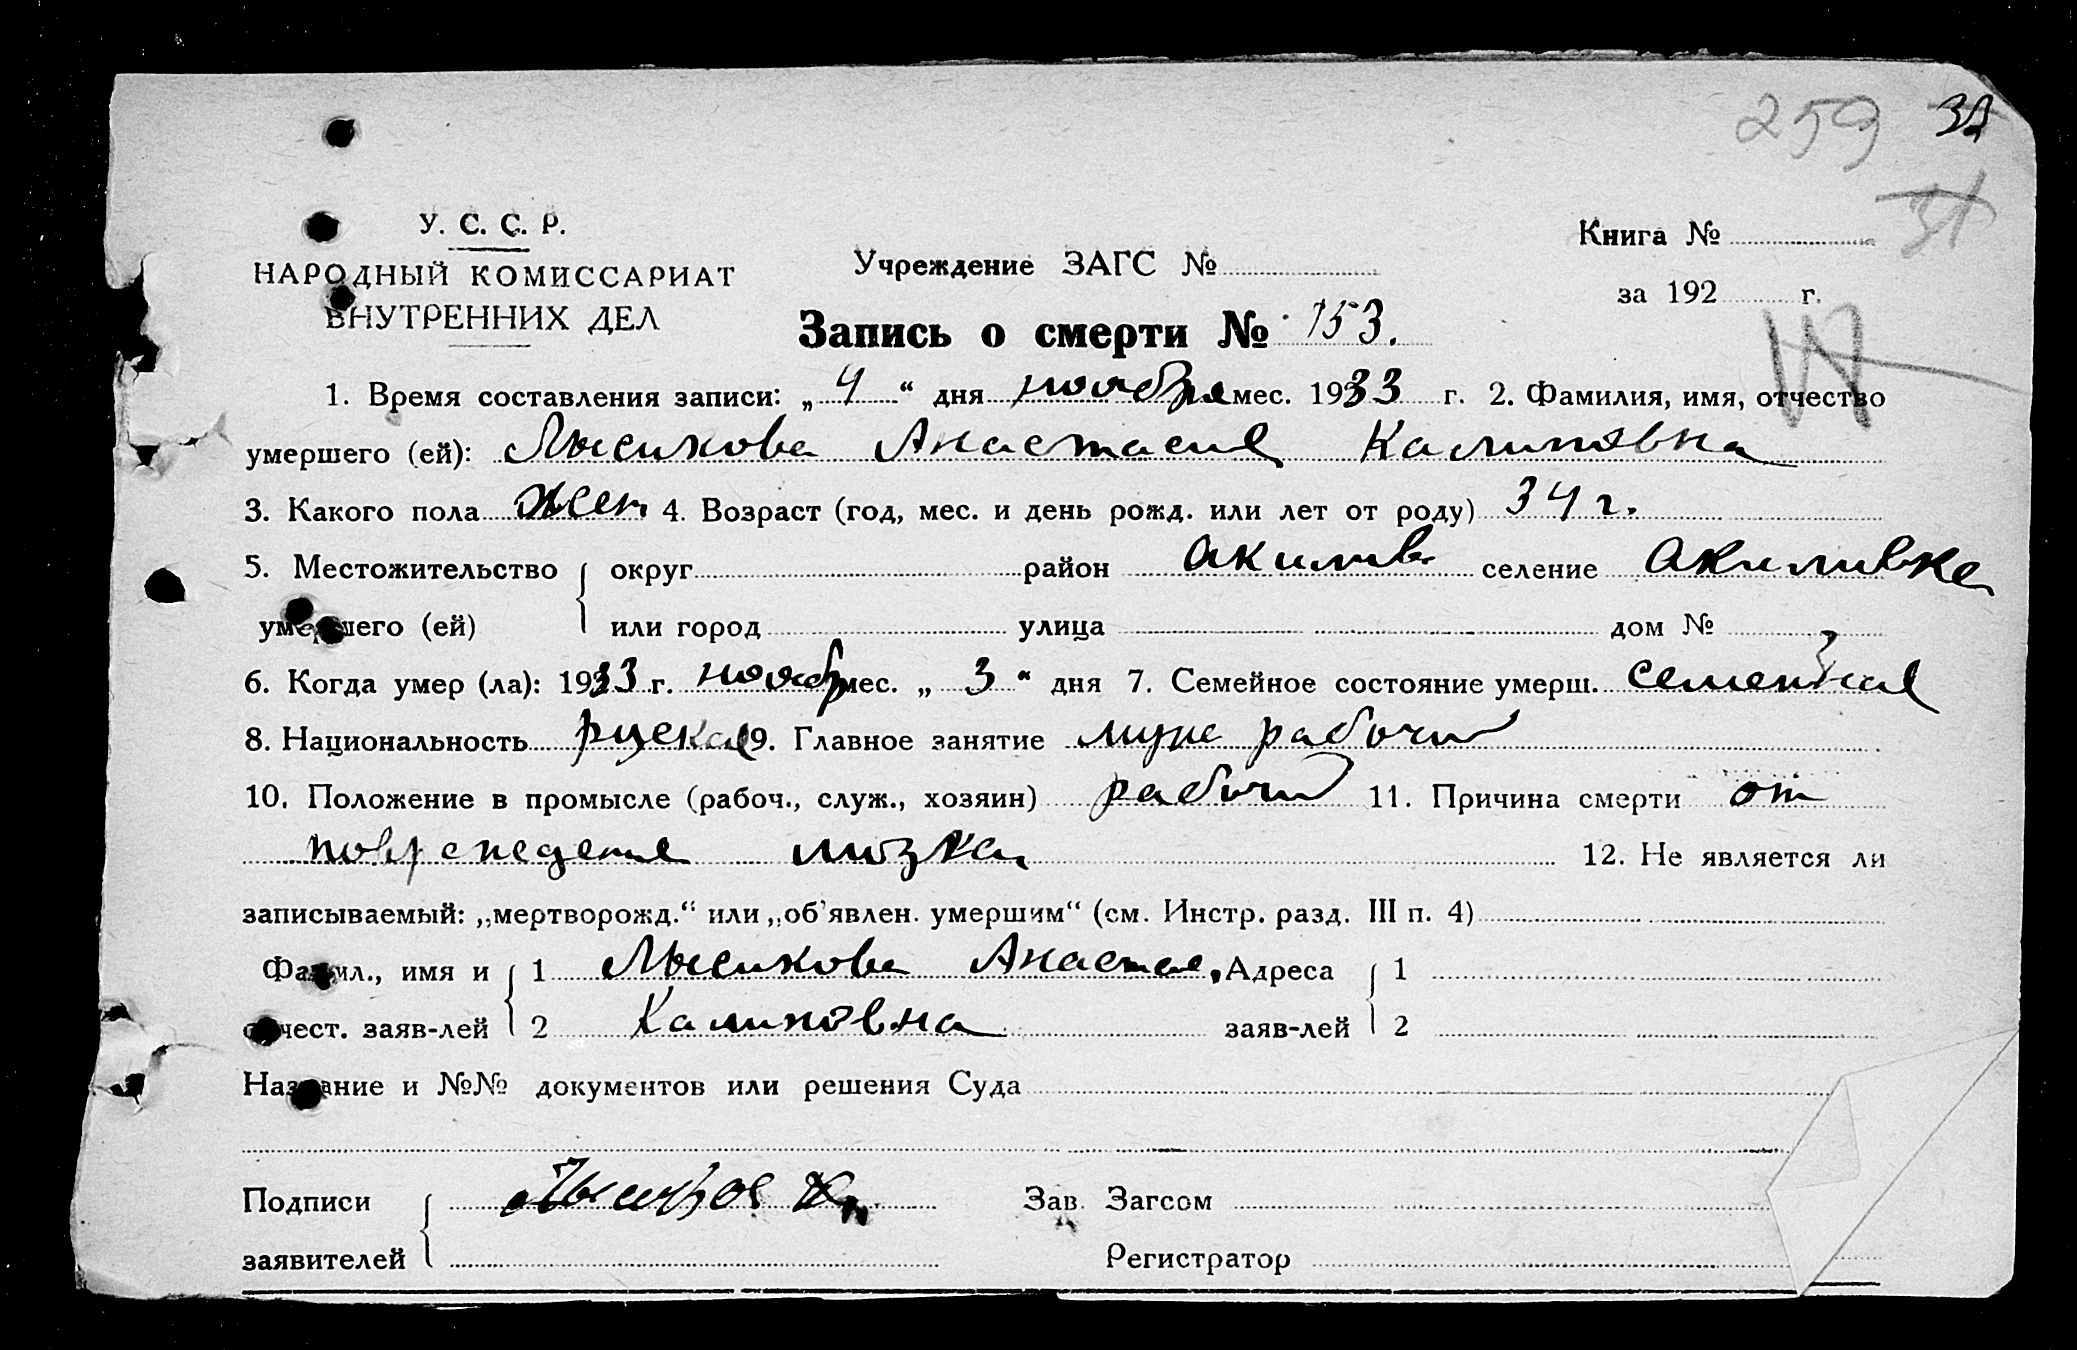 259 32
31
У. С. С. Р.
НАРОДНЫЙ КОМИССАРИАТ
ВНУТРЕННИХ ДЕЛ
Учреждение ЗАГС №
Книга №
за 192 г.
Запись о смерти № 153.
1. Время составления записи: „ 4 “ дня ноября мес. 1933 г. 2. Фамилия, имя, отчество
умершего (ей): Лысикова Анастасия Калиновна
3. Какого пола жен 4. Возраст (год, мес. и день рожд. или лет от роду) 34 г.
5. Местожительство округ район Акимов селение Акимивка
умершего (ей) или город улица дом №
6. Когда умер (ла): 1933 г. нояб мес. „ 3 “ дня 7. Семейное состояние умерш. семейная
8. Национальность руская 9. Главное занятие муж рабочий
10. Положение в промысле (рабоч., служ., хозяин) рабочий 11. Причина смерти от
повреждение мозка 12. Не является ли
записываемый: „мертворожд.“ или „об'явлен. умершим“ (см. Инстр. разд. III п. 4)
Фамил., имя и 1 Лысикова Анастас, Адреса 1
отчест. заяв-лей 2 Калиновна заяв-лей 2
Название и №№ документов или решения Суда
Подписи Зав. Загсом
заявителей Регистратор